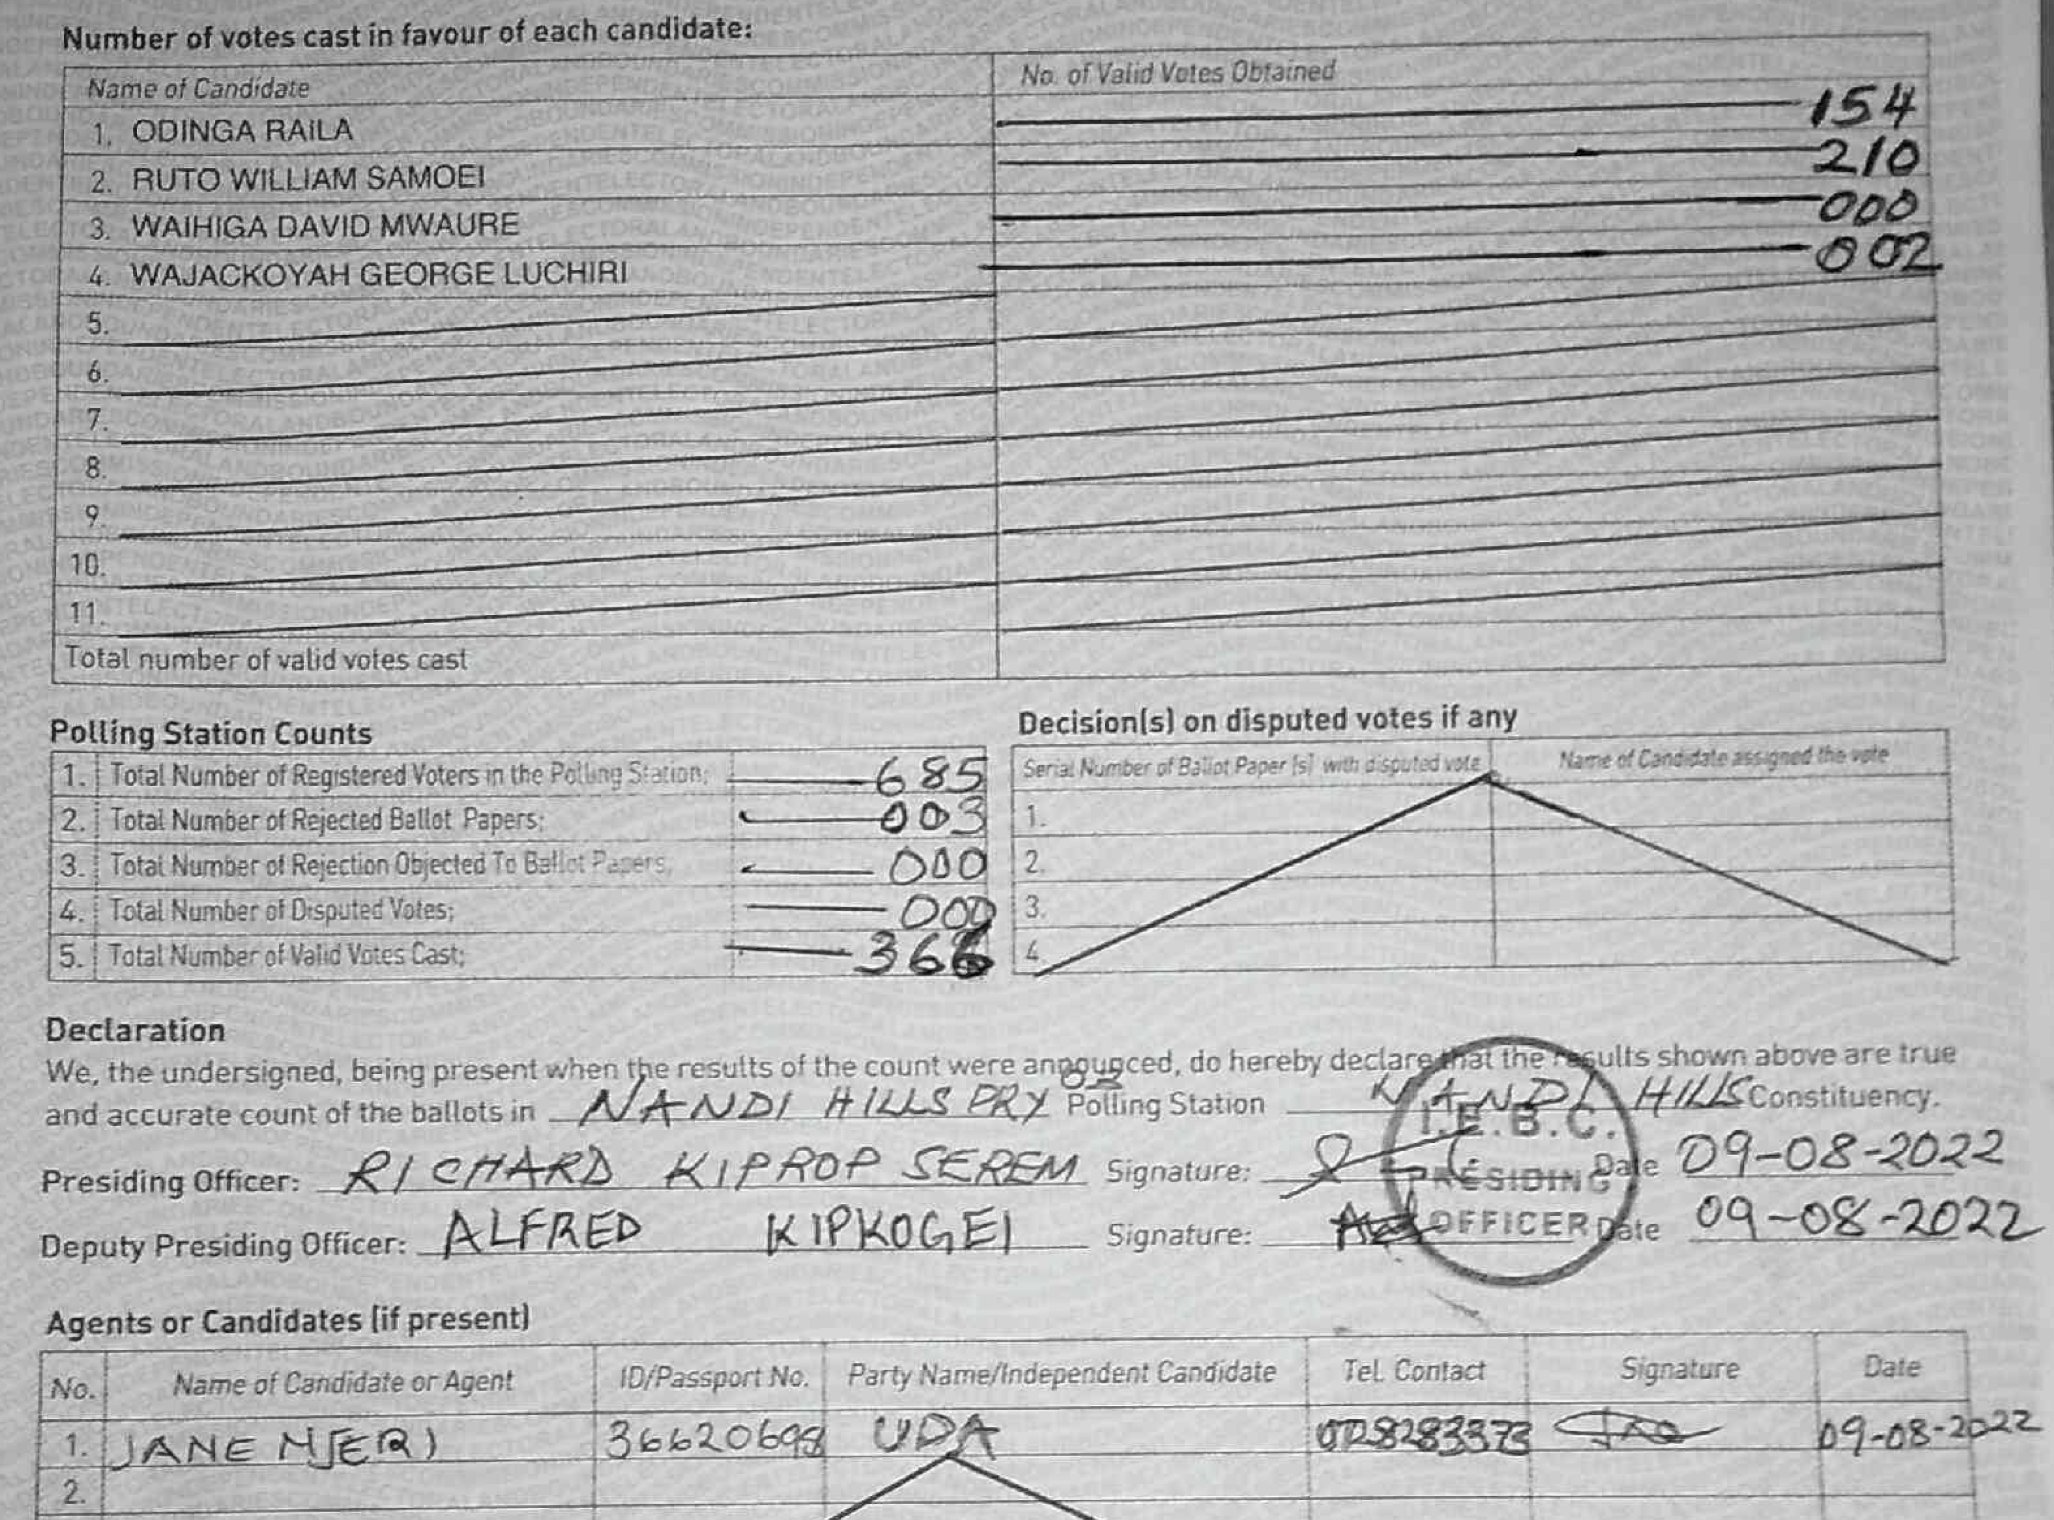 Number of votes cast in favour of each candidate:
Name of Candidate No. of Valid Votes Obtained
1. ODINGA RAILA 154
2. RUTO WILLIAM SAMOEI 210
3. WAIHIGA DAVID MWAURE 000
4. WAJACKOYAH GEORGE LUCHIRI 002
5.
6.
7.
8.
9.
10.
11.
Total number of valid votes cast
Polling Station Counts
1. Total Number of Registered Voters in the Polling Station; 685
2. Total Number of Rejected Ballot Papers; 003
3. Total Number of Rejection Objected To Ballot Papers; 000
4. Total Number of Disputed Votes; 000
5. Total Number of Valid Votes Cast; 366
Decision(s) on disputed votes if any
Serial Number of Ballot Paper (s) with disputed vote Name of Candidate assigned the vote
1.
2.
3.
4.
Declaration
We, the undersigned, being present when the results of the count were announced, do hereby declare that the results shown above are true
and accurate count of the ballots in NANDI HILLS PRY Polling Station NANDI HILLS Constituency.
Presiding Officer: RICHARD KIPROP SEREM Signature: Date 09-08-2022
Deputy Presiding Officer: ALFRED KIPKOGEI Signature: Date 09-08-2022
I.E.B.C.
PRESIDING
OFFICER
Agents or Candidates (if present)
No. Name of Candidate or Agent ID/Passport No. Party Name/Independent Candidate Tel. Contact Signature Date
1. JANE NJERI 36620698 UDA 0728283373 09-08-2022
2.